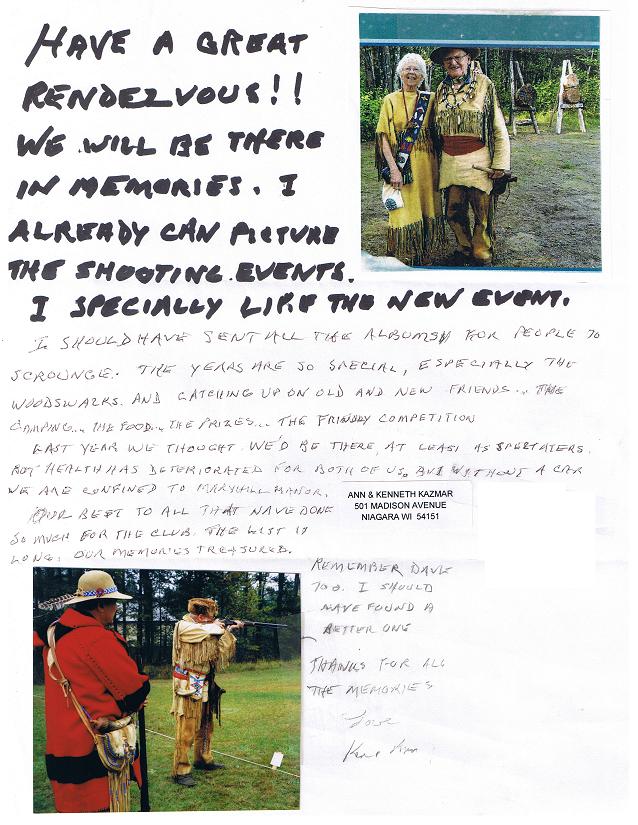 HAVE A GREAT
RENDEZVOUS!!
WE WILL BE THERE
IN MEMORIES. I
ALREADY CAN PICTURE
THE SHOOTING EVENTS.
I SPECIALLY LIKE THE NEW EVENT.
I SHOULD HAVE SENT ALL THE ALBUMS FOR PEOPLE TO
SCROUNGE. THE YEARS ARE SO SPECIAL, ESPECIALLY THE
WOODSWALKS. AND CATCHING UP ON OLD AND NEW FRIENDS... THE
CAMPING... THE FOOD... THE PRIZES... THE FRIENDLY COMPETITION
LAST YEAR WE THOUGHT WE'D BE THERE, AT LEAST AS SPECTATERS.
BUT HEALTH HAS DETERIORATED FOR BOTH OF US, BUT WITHOUT A CAR
WE ARE CONFINED TO MARYHILL MANOR.
OUR BEST TO ALL THAT HAVE DONE
SO MUCH FOR THE CLUB. THE LIST IS
LONG. OUR MEMORIES TREASURED.
ANN & KENNETH KAZMAR
501 MADISON AVENUE
NIAGARA WI 54151
REMEMBER DAVE
TOO. I SHOULD
HAVE FOUND A
BETTER ONE
THANKS FOR ALL
THE MEMORIES
Love